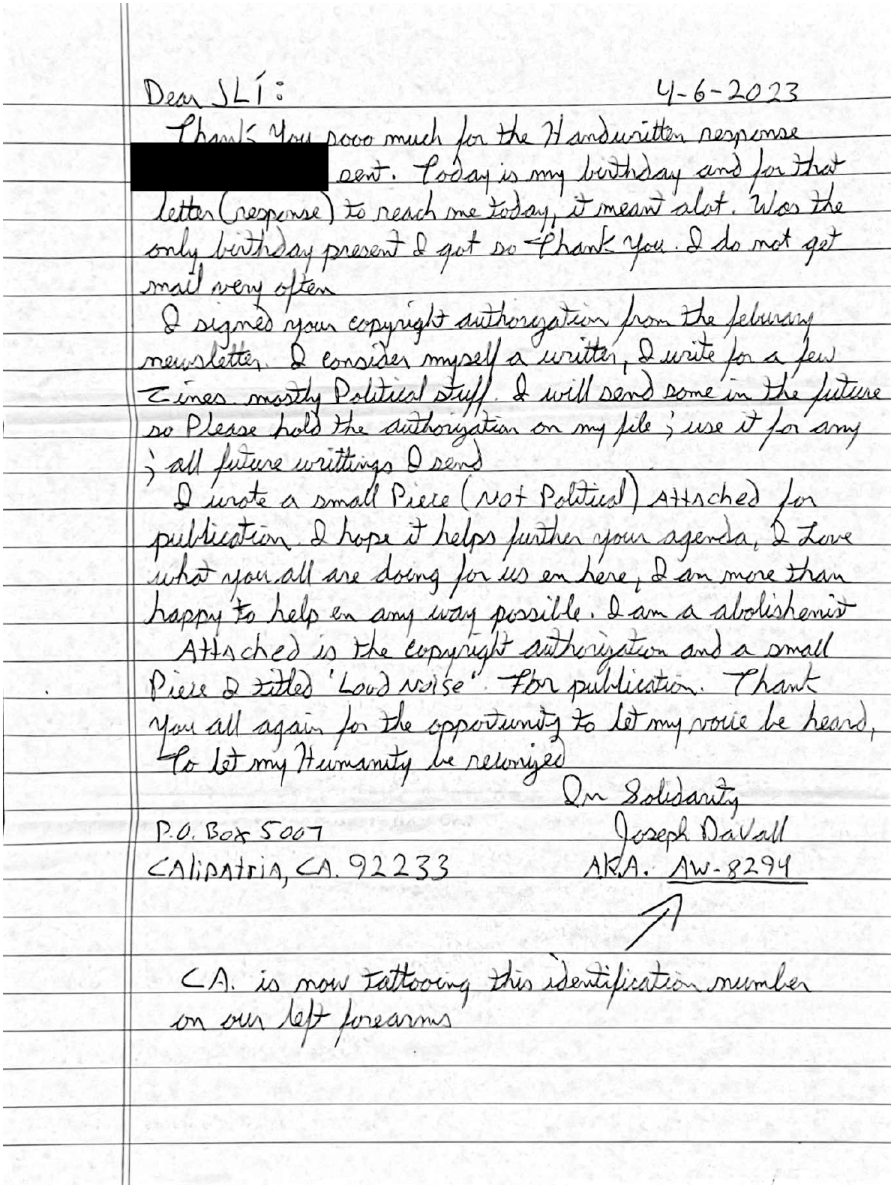 Dear JLI: 4-6-2023
Thank You sooo much for the Handwritten response
sent. Today is my birthday and for that
letter (response) to reach me today, it meant alot. Was the
only birthday present I got so Thank You. I do not get
mail very often
I signed your copyright authorization from the feburary
newsletter. I consider myself a writter, I write for a few
Zines mostly Political stuff. I will send some in the future
so Please hold the authorization on my file ; use it for any
; all future writtings I send
I wrote a small Piece (Not Political) Attached for
publication. I hope it helps further your agenda, I Love
what you all are doing for us en here, I am more than
happy to help en any way possible. I am a abolishenist
Attached is the copyright authorization and a small
Piece I titled "Loud Noise". For publication. Thank
You all again for the opportunity to let my voice be heard,
To let my Humanity be reconized
In Solidarity
P.O. Box 5007 Joseph DaVall
CAlipAtriA, CA. 92233 AKA. AW-8294
CA. is now tattooing this identification number
on our left forearms